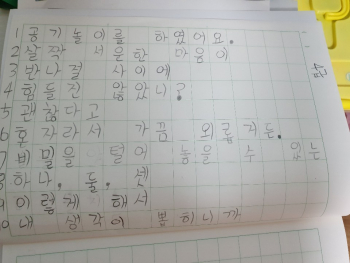 1 공기놀이를 하였어요.
2 살짝 서운한 마음이
3 반나절 사이에
4 힘들진 않았니?
5 괜찮다고
6 혼자라서 가끔 외롭거든.
7 비밀을 털어 놓을 수 있는
8 하나. 둘. 셋
9 이렇게 해서
10 내 생각이 뽑히니까